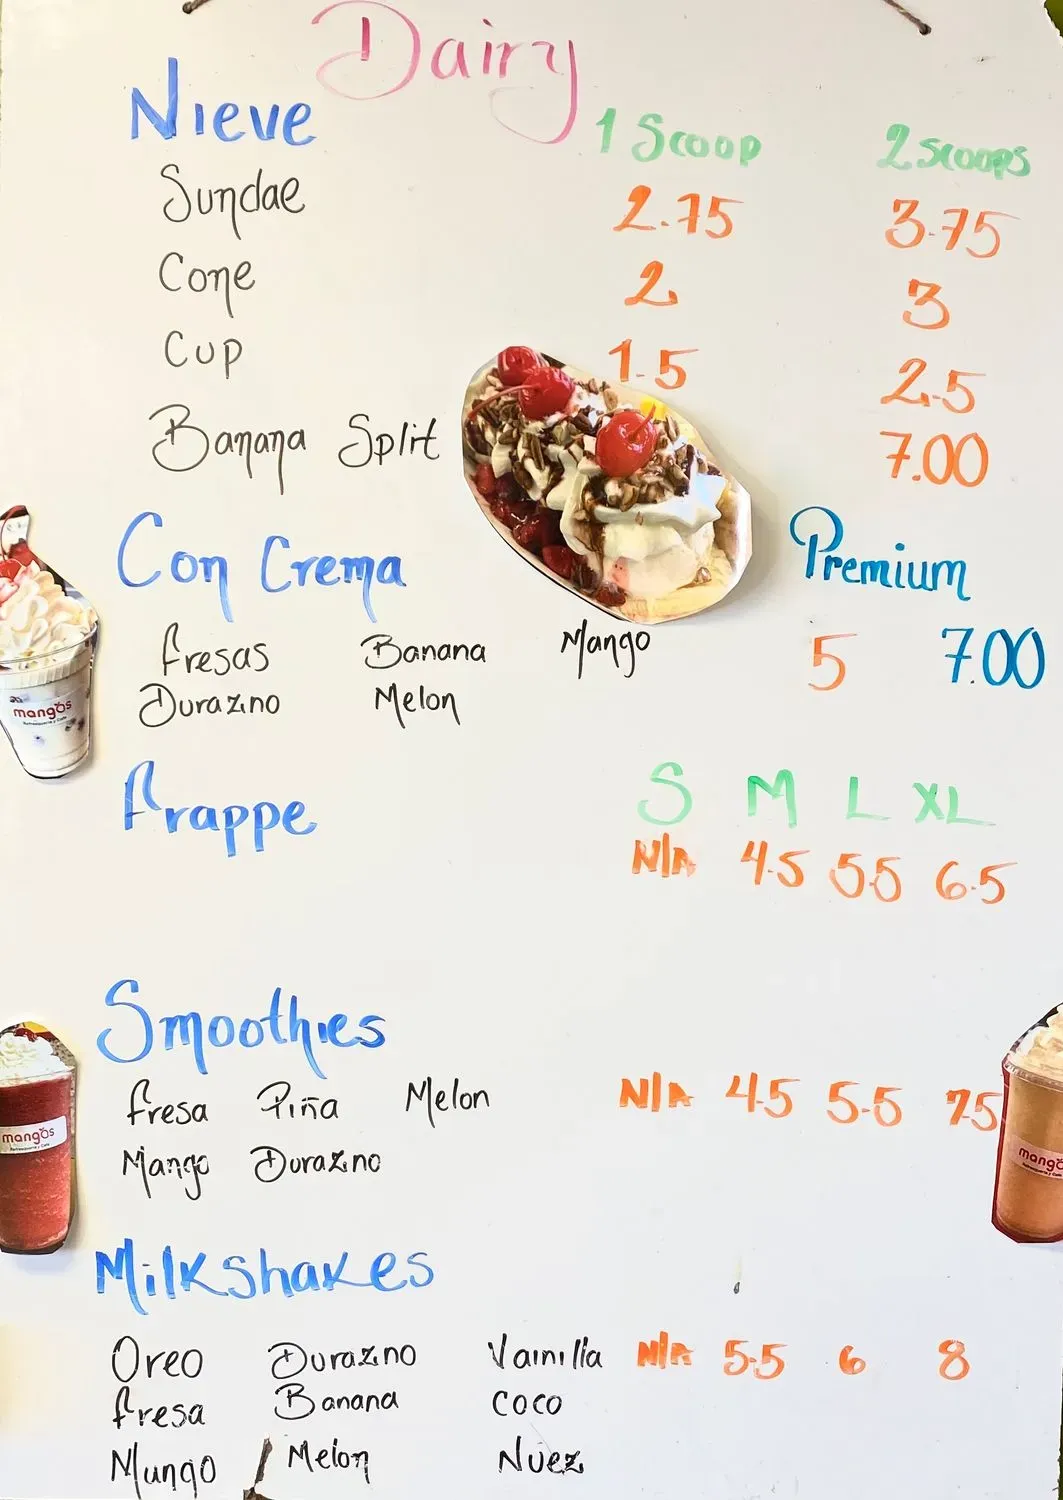 Dairy
Nieve 1 Scoop 2 scoops
Sundae 2.75 3.75
Cone 2 3
Cup 1.5 2.5
Banana Split 7.00
Con Crema Premium
Fresas Banana Mango 5 7.00
Durazno Melon
mangos
Frappe S M L XL
N/A 4.5 5.5 6.5
Smoothies
Fresa Piña Melon N/A 4.5 5.5 7.5
Mango Durazno
mangos
mango
Milkshakes
Oreo Durazno Vainilla N/A 5.5 6 8
Fresa Banana COCO
Mango Melon Nuez